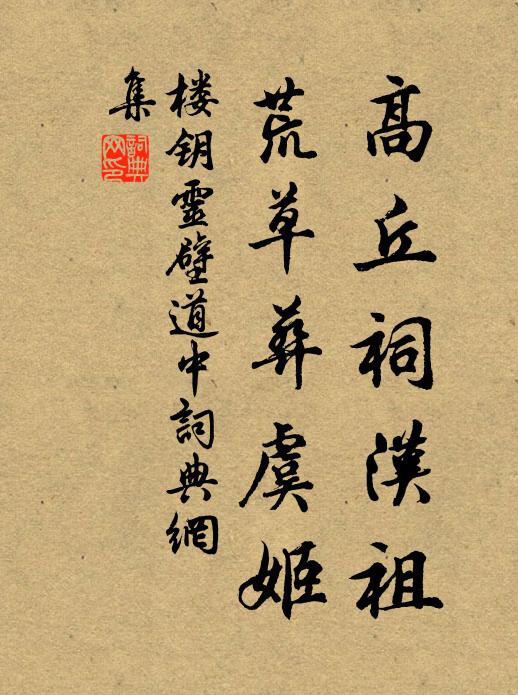 高丘祠漢祖
荒草葬虞姬
楼钥靈壁道中詞典網
集
詞典网印